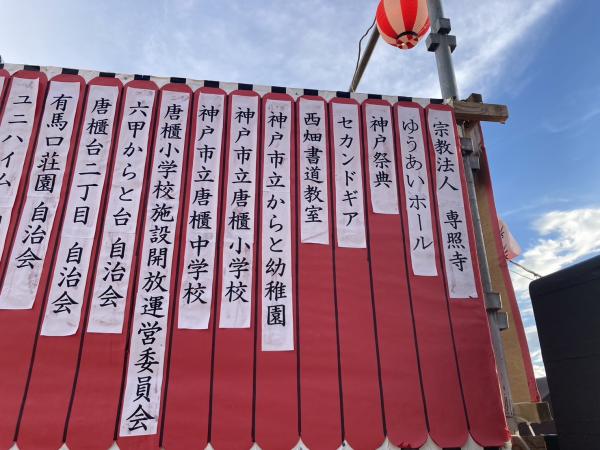 宗教法人 専照寺
ゆうあいホール
神戸祭典
セカンドギア
西畑書道教室
神戸市立からと幼稚園
神戸市立唐櫃小学校
神戸市立唐櫃中学校
唐櫃小学校施設開放運営委員会
六甲からと台 自治会
唐櫃台二丁目 自治会
有馬口荘園 自治会
ユニハイム